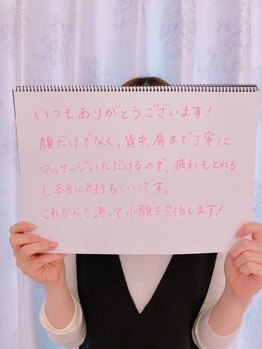 いつもありがとうございます!
顔だけでなく、背中、肩まで丁寧に
マッサージいただけるので、疲れもとれる
し本当に気持ちいいです。
これからも通って小顔を目指します!